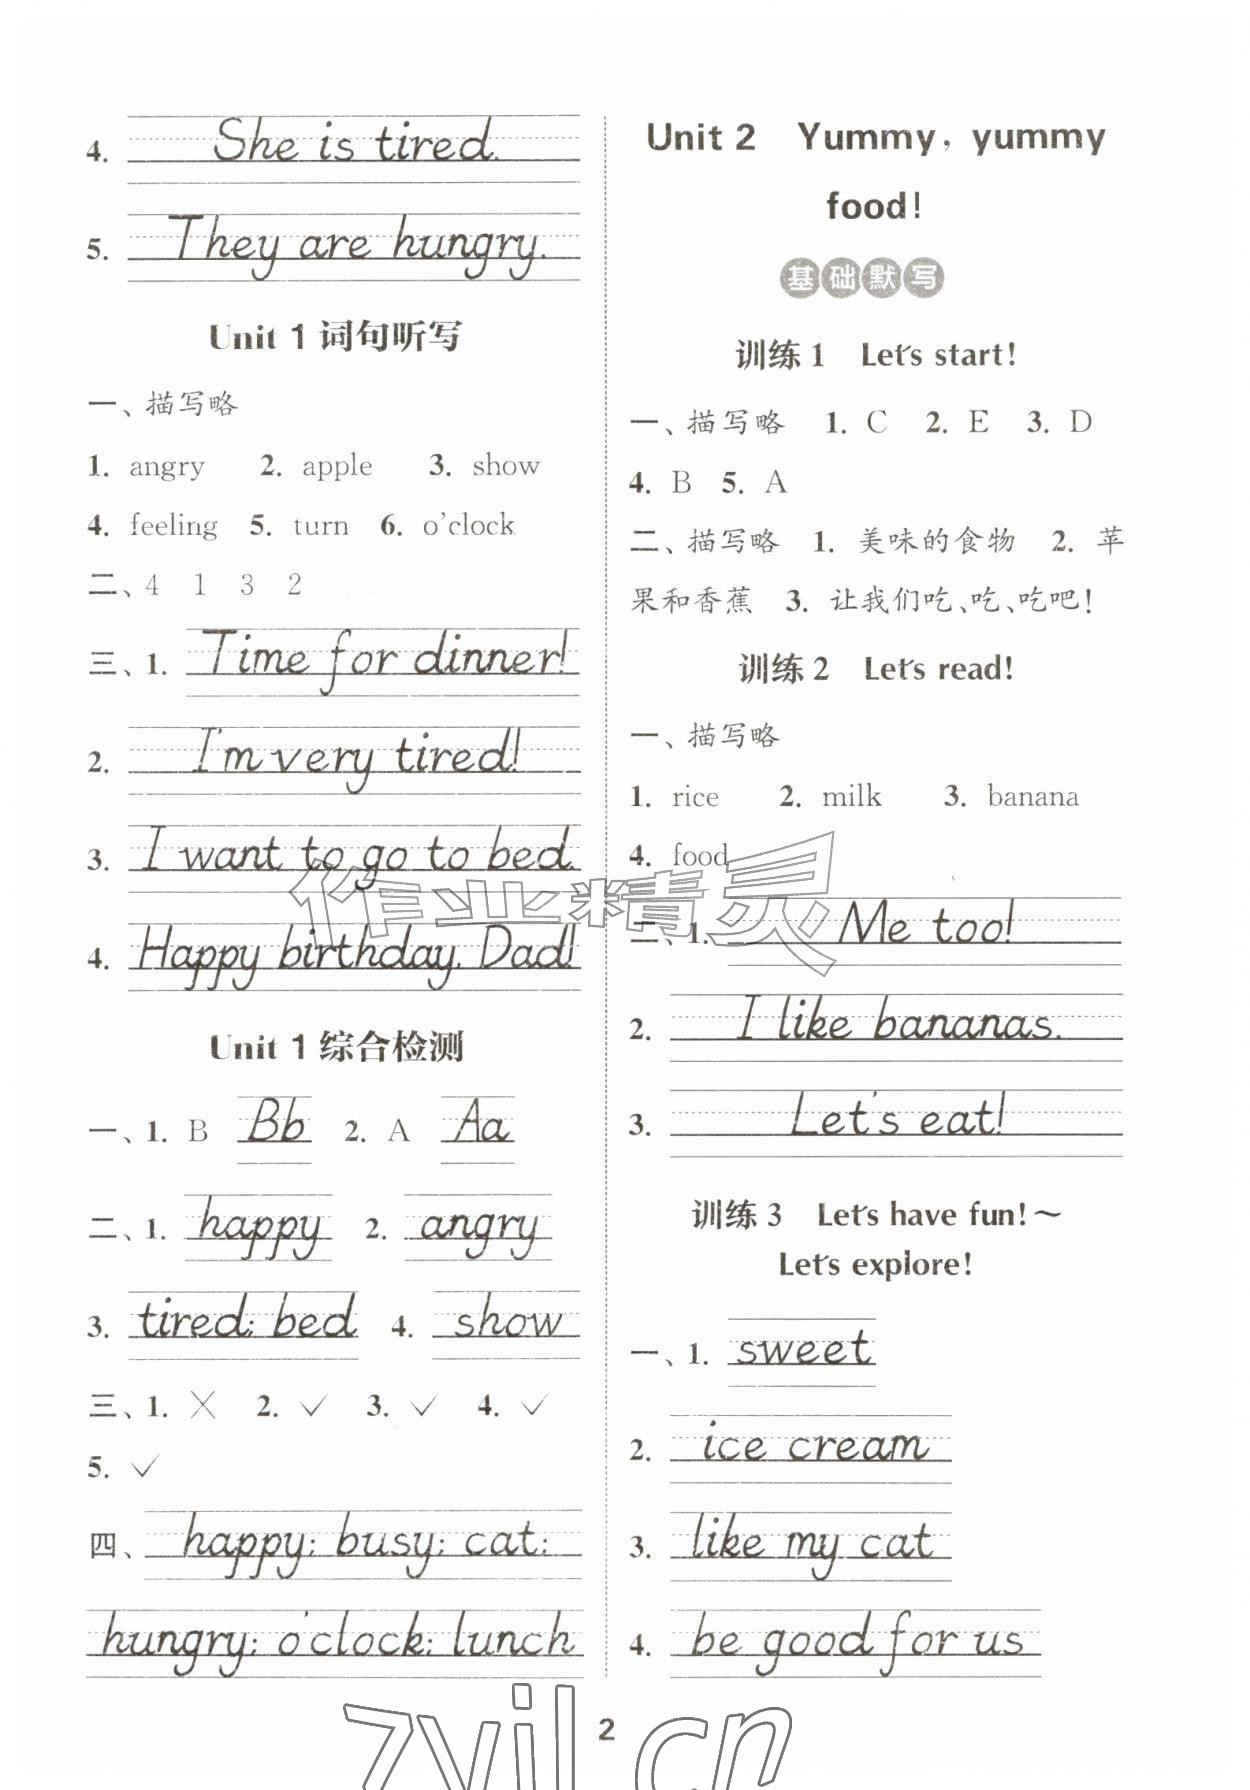 4. She is tired.
5. They are hungry.
Unit 1 词句听写
一、描写略
1. angry 2. apple 3. show
4. feeling 5. turn 6. o'clock
二、4 1 3 2
三、1. Time for dinner!
2. I'm very tired!
3. I want to go to bed.
4. Happy birthday, Dad!
Unit 1 综合检测
一、1. B Bb 2. A Aa
二、1. happy 2. angry
3. tired; bed 4. show
三、1. × 2. ✓ 3. ✓ 4. ✓
5. ✓
四、happy; busy; cat;
hungry; o'clock; lunch
Unit 2 Yummy, yummy
food!
基础默写
训练1 Let's start!
一、描写略 1. C 2. E 3. D
4. B 5. A
二、描写略 1. 美味的食物 2. 苹
果和香蕉 3. 让我们吃、吃、吃吧!
训练2 Let's read!
一、描写略
1. rice 2. milk 3. banana
4. food
二、1. Me too!
2. I like bananas.
3. Let's eat!
训练3 Let's have fun!~
Let's explore!
一、1. sweet
2. ice cream
3. like my cat
4. be good for us
作业精灵
zyil.cn
2